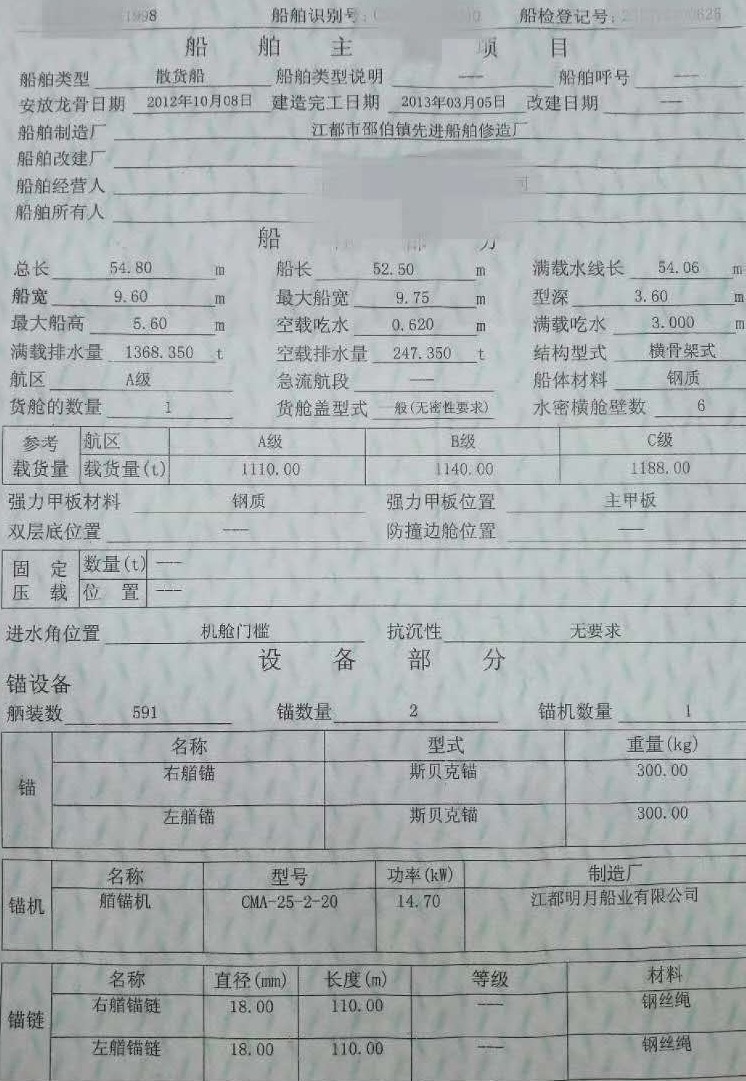 1998 船舶识别号: 船检登记号:
船 舶 主 项 目
船舶类型 散货船 船舶类型说明 --- 船舶呼号 ---
安放龙骨日期 2012年10月08日 建造完工日期 2013年03月05日 改建日期 ---
船舶制造厂 江都市邵伯镇先进船舶修造厂
船舶改建厂
船舶经营人
船舶所有人
船 部 分
总长 54.80 m 船长 52.50 m 满载水线长 54.06 m
船宽 9.60 m 最大船宽 9.75 m 型深 3.60 m
最大船高 5.60 m 空载吃水 0.620 m 满载吃水 3.000 m
满载排水量 1368.350 t 空载排水量 247.350 t 结构型式 横骨架式
航区 A级 急流航段 --- 船体材料 钢质
货舱的数量 1 货舱盖型式 一般(无密性要求) 水密横舱壁数 6
参考 航区 A级 B级 C级
载货量 载货量(t) 1110.00 1140.00 1188.00
强力甲板材料 钢质 强力甲板位置 主甲板
双层底位置 --- 防撞边舱位置 ---
固 定 数量(t) ---
压 载 位 置 ---
进水角位置 机舱门槛 抗沉性 无要求
设 备 部 分
锚设备
舾装数 591 锚数量 2 锚机数量 1
锚 名称 型式 重量(kg)
右艏锚 斯贝克锚 300.00
左艏锚 斯贝克锚 300.00
锚机 名称 型号 功率(kW) 制造厂
艏锚机 CMA-25-2-20 14.70 江都明月船业有限公司
锚链 名称 直径(mm) 长度(m) 等级 材料
右艏锚链 18.00 110.00 --- 钢丝绳
左艏锚链 18.00 110.00 --- 钢丝绳